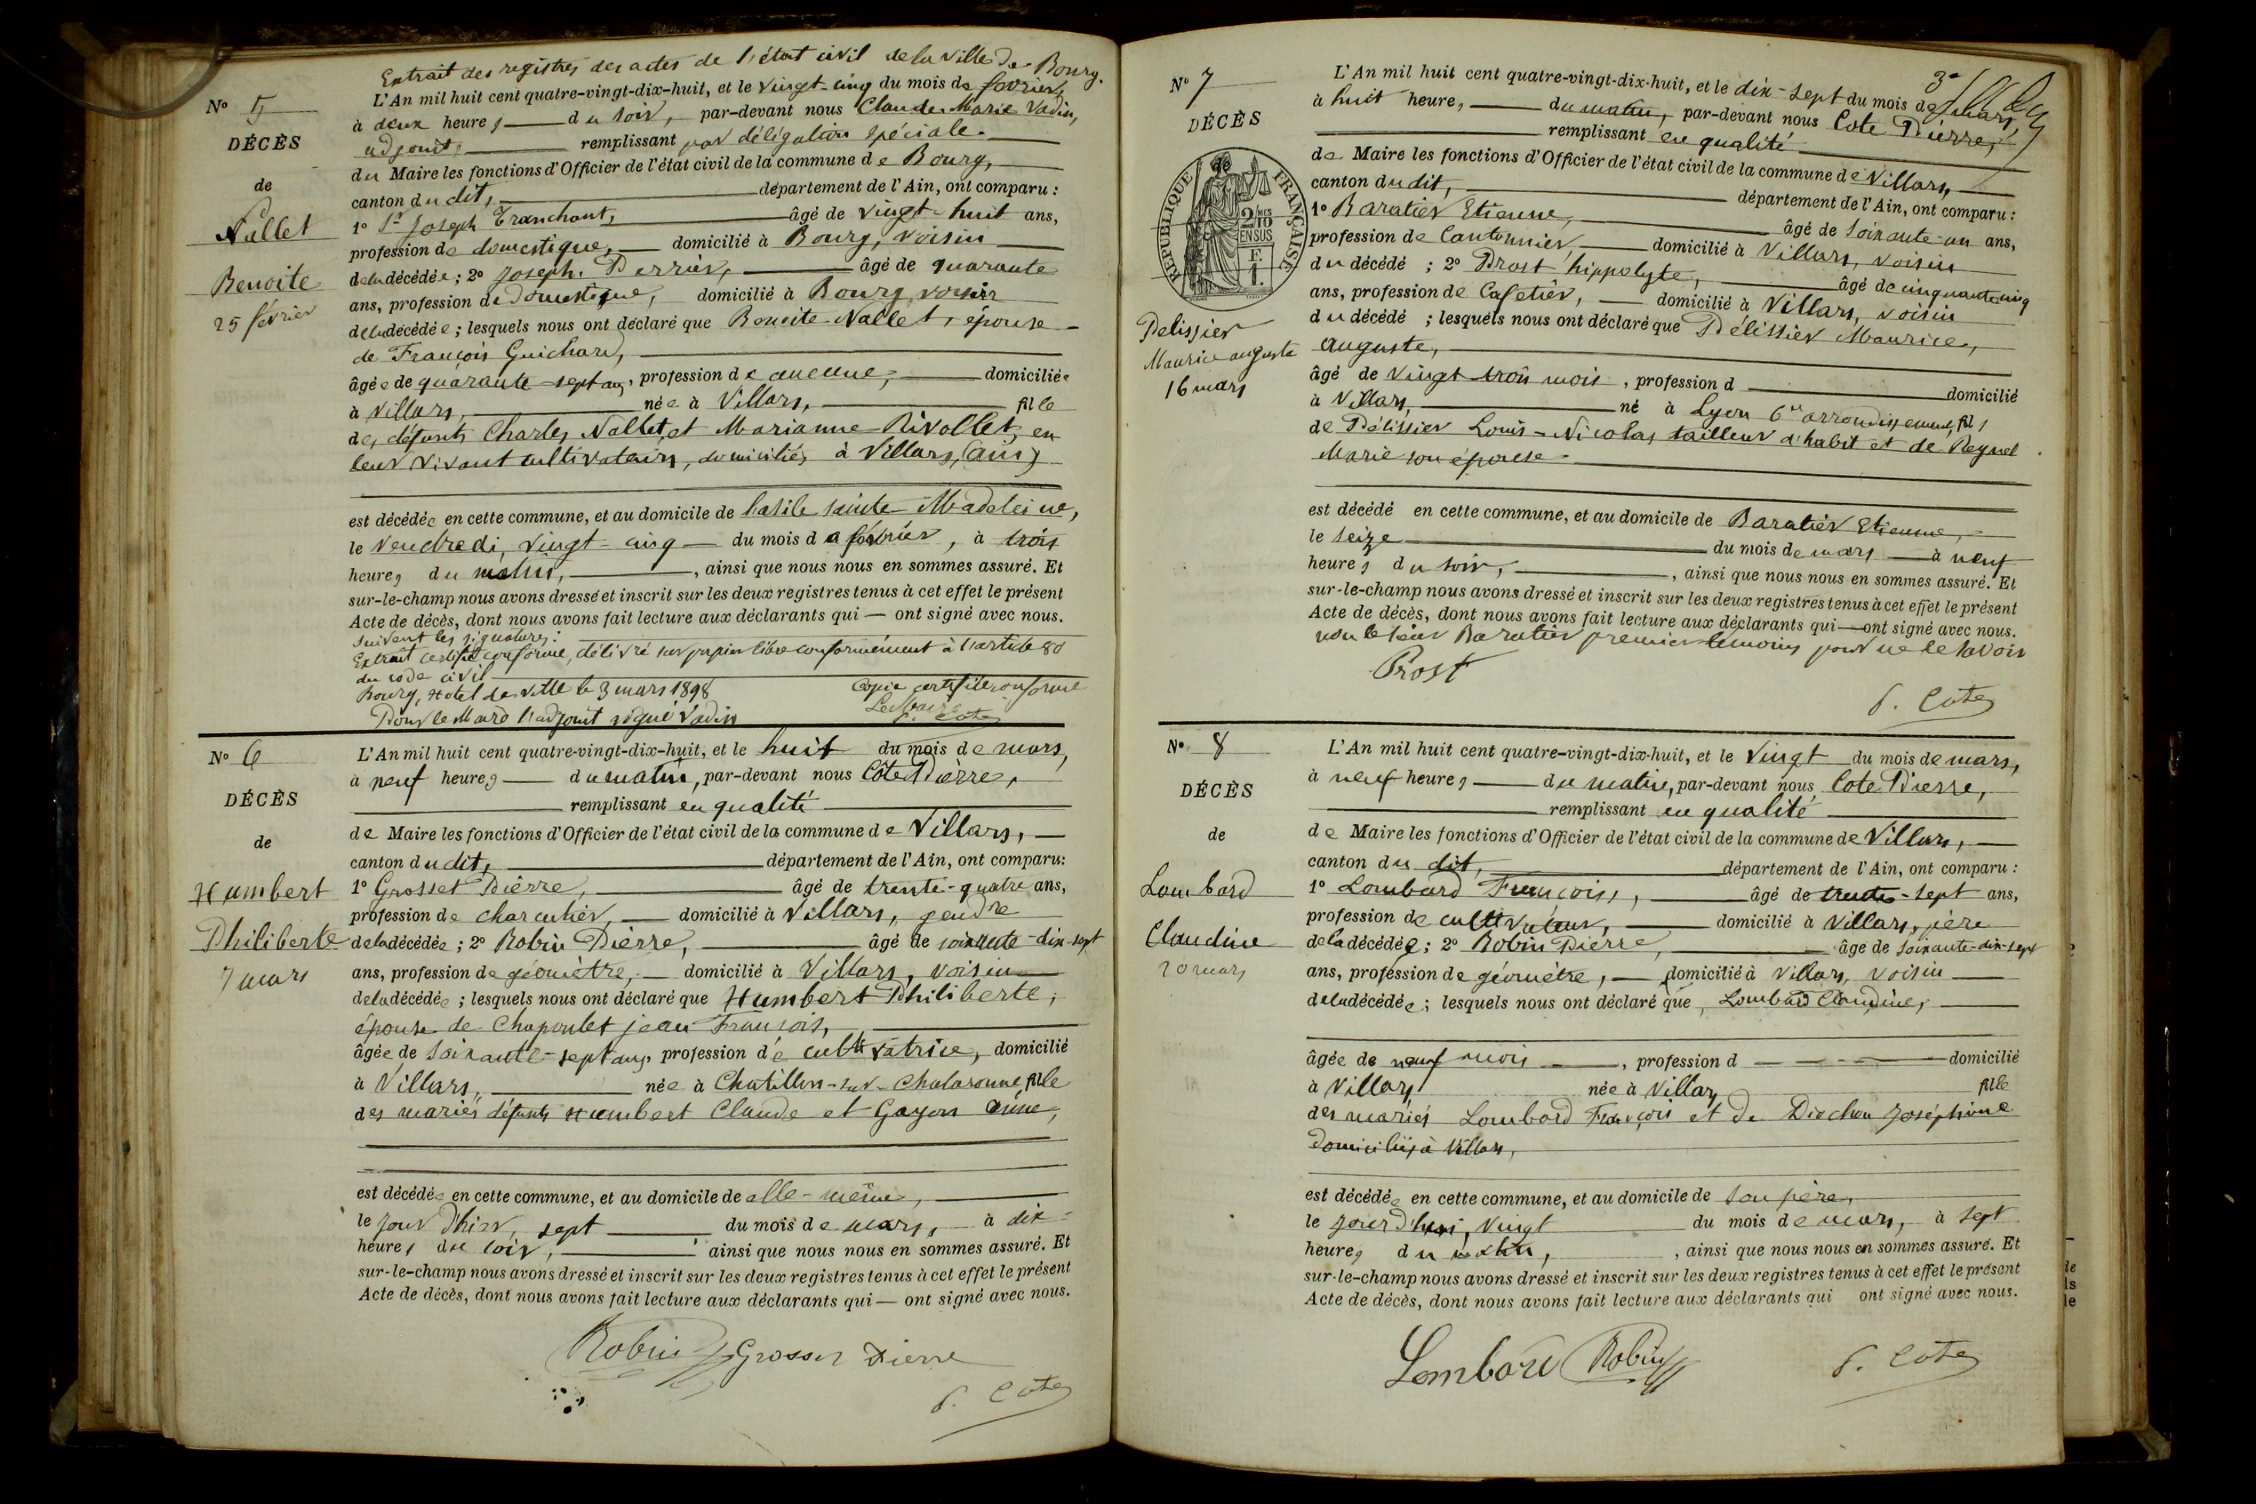 Extrait des registres des actes de l'état civil de la ville de Bourg.
N° 5
L'An mil huit cent quatre-vingt-dix-huit, et le vingt-cinq du mois de février,
à deux heures du soir, par-devant nous Claude Marie Vadin,
DÉCÈS
adjoint, remplissant par délégation spéciale
du Maire les fonctions d'Officier de l'état civil de la commune de Bourg,
de
canton du dit, département de l'Ain, ont comparu :
Nallet
1° Sr Joseph Tranchant, âgé de vingt-huit ans,
profession de domestique, domicilié à Bourg, voisin
Benoite
de la décédée ; 2° Joseph Perrier, âgé de quarante
25 février
ans, profession de domestique, domicilié à Bourg, voisin
de la décédée ; lesquels nous ont déclaré que Benoite Nallet, épouse
de François Guichard,
âgée de quarante-sept ans, profession de aucune, domiciliée
à Villars, née à Villars, fille
des défunts Charles Nallet, et Marianne Rivollet, en
leur vivant cultivateurs, domiciliés à Villars, (Ain)
est décédée en cette commune, et au domicile de l'asile sainte Madeleine,
le vendredi, vingt-cinq du mois de février, à trois
heures du matin, , ainsi que nous nous en sommes assuré. Et
sur-le-champ nous avons dressé et inscrit sur les deux registres tenus à cet effet le présent
Acte de décès, dont nous avons fait lecture aux déclarants qui — ont signé avec nous.
Suivent les signatures :
Extrait certifié conforme, délivré sur papier libre conformément à l'article 80
du code civil
Bourg, Hotel de Ville le 3 mars 1898
Copie certifiée conforme
Pour le Maire l'adjoint signé Vadin
Le Maire
P. Cote
N° 6
L'An mil huit cent quatre-vingt-dix-huit, et le huit du mois de mars,
à neuf heures du matin, par-devant nous Côte Pierre,
DÉCÈS
remplissant en qualité
de Maire les fonctions d'Officier de l'état civil de la commune de Villars,
de
canton du dit, département de l'Ain, ont comparu :
Humbert
1° Grosset Pierre, âgé de trente-quatre ans,
profession de charcutier, domicilié à Villars, gendre
Philiberte
de la décédée ; 2° Robin Pierre, âgé de soixante-dix-sept
7 mars
ans, profession de géomètre, domicilié à Villars, voisin
de la décédée ; lesquels nous ont déclaré que Humbert Philiberte,
épouse de Chapoulet jean François,
âgée de soixante-sept ans, profession de cultivatrice, domicilié
à Villars, née à Chatillon-sur-Chalaronne, fille
des mariés défunts Humbert Claude et Gayon Anne,
est décédée en cette commune, et au domicile de elle-même,
le jour d'hier, sept du mois de mars, à dix
heures du soir, ainsi que nous nous en sommes assuré. Et
sur-le-champ nous avons dressé et inscrit sur les deux registres tenus à cet effet le présent
Acte de décès, dont nous avons fait lecture aux déclarants qui — ont signé avec nous.
Robin Grosset Pierre
P. Cote
3e
N° 7
L'An mil huit cent quatre-vingt-dix-huit, et le dix-sept du mois de mars,
à huit heures, du matin, par-devant nous Cote Pierre,
DÉCÈS
remplissant en qualité
de
de Maire les fonctions d'Officier de l'état civil de la commune de Villars,
canton du dit, département de l'Ain, ont comparu :
RÉPUBLIQUE FRANÇAISE
2/10 EN SUS
1° Baratier Etienne, âgé de soixante-un ans,
profession de Cantonnier, domicilié à Villars, voisin
du décédé ; 2° Prost hippolyte, âgé de cinquante-cinq
ans, profession de Cafetier, domicilié à Villars, voisin
Pelissier
Maurice auguste
16 mars
du décédé ; lesquels nous ont déclaré que Pélissier Maurice,
auguste,
âgé de vingt-trois mois, profession d domicilié
à Villars, né à Lyon 6me arrondissement, fils
de Pélissier Louis-Nicolas tailleur d'habit et de Reynel
Marie son épouse.
est décédé en cette commune, et au domicile de Baratier Etienne,
le seize du mois de mars à neuf
heures du soir, , ainsi que nous nous en sommes assuré. Et
sur-le-champ nous avons dressé et inscrit sur les deux registres tenus à cet effet le présent
Acte de décès, dont nous avons fait lecture aux déclarants qui — ont signé avec nous.
non le sieur Baratier premier témoins pour ne le savoir
Prost
P. Cote
N° 8
L'An mil huit cent quatre-vingt-dix-huit, et le vingt du mois de mars,
à neuf heures, du matin, par-devant nous Cote Pierre,
DÉCÈS
remplissant en qualité
de
de Maire les fonctions d'Officier de l'état civil de la commune de Villars,
canton du dit, département de l'Ain, ont comparu :
Lombard
1° Lombard François, âgé de trente-sept ans,
profession de cultivateur, domicilié à Villars, père
Claudine
de la décédée ; 2° Robin Pierre, âgé de soixante-dix-sept
20 mars
ans, profession de géomètre, domicilié à Villars, voisin
de la décédée ; lesquels nous ont déclaré que Lombard Claudine,
âgée de neuf mois , profession d domicilié
à Villars née à Villars fille
des mariés Lombard François et de Diochon Joséphine
domiciliés à Villars,
est décédée en cette commune, et au domicile de son père,
le jourd'hui, vingt du mois de mars, à sept
heures du matin, , ainsi que nous nous en sommes assuré. Et
sur-le-champ nous avons dressé et inscrit sur les deux registres tenus à cet effet le présent
Acte de décès, dont nous avons fait lecture aux déclarants qui ont signé avec nous.
Lombard Robin
P. Cote